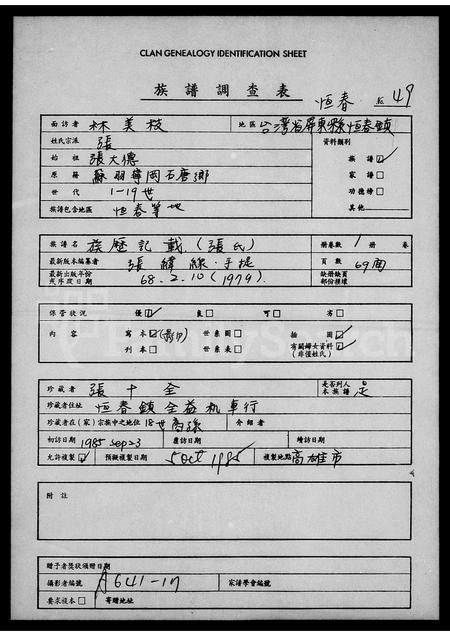 CLAN GENEALOGY IDENTIFICATION SHEET
族譜調查表
恒春 49
面訪者 林美枝 地區 台灣省屏東縣恒春鎮
姓氏宗派 張 資料類別
始祖 張大德 族譜☑
原籍 石磨鄉 家譜☐
世代 1-19世 功德榜☐
族譜包含地區 恒春等地 其他
族譜名 族歷記載(張氏) 册卷數 1 册 卷
最新版本編纂者 張緯線·手提 頁數 69面
最新出版年份或序跋日期 68.2.10(1979) 缺册缺頁部份種壞
保管狀況 優☑ 良☐ 可☐ 劣☐
內容 寫本☑(影印) 世系圖☐ 插圖☑
刊本☐ 世系表☐ 有關婦女資料☑(非僅姓氏)
珍藏者 張十全 是否列入本族譜 是
珍藏者住址 恒春鎮全益机車行
珍藏者在(家)宗族中之地位 18世裔孫 介紹者
初訪日期 1985 Sep 23 覆訪日期 續訪日期
允許複製☑ 預擬複製日期 5 Oct 1985 複製地點 高雄市
附註
贈予者獎狀頒贈日期
攝影者編號 A641-17 家譜學會編號
要求複本☐ 寄贈地址